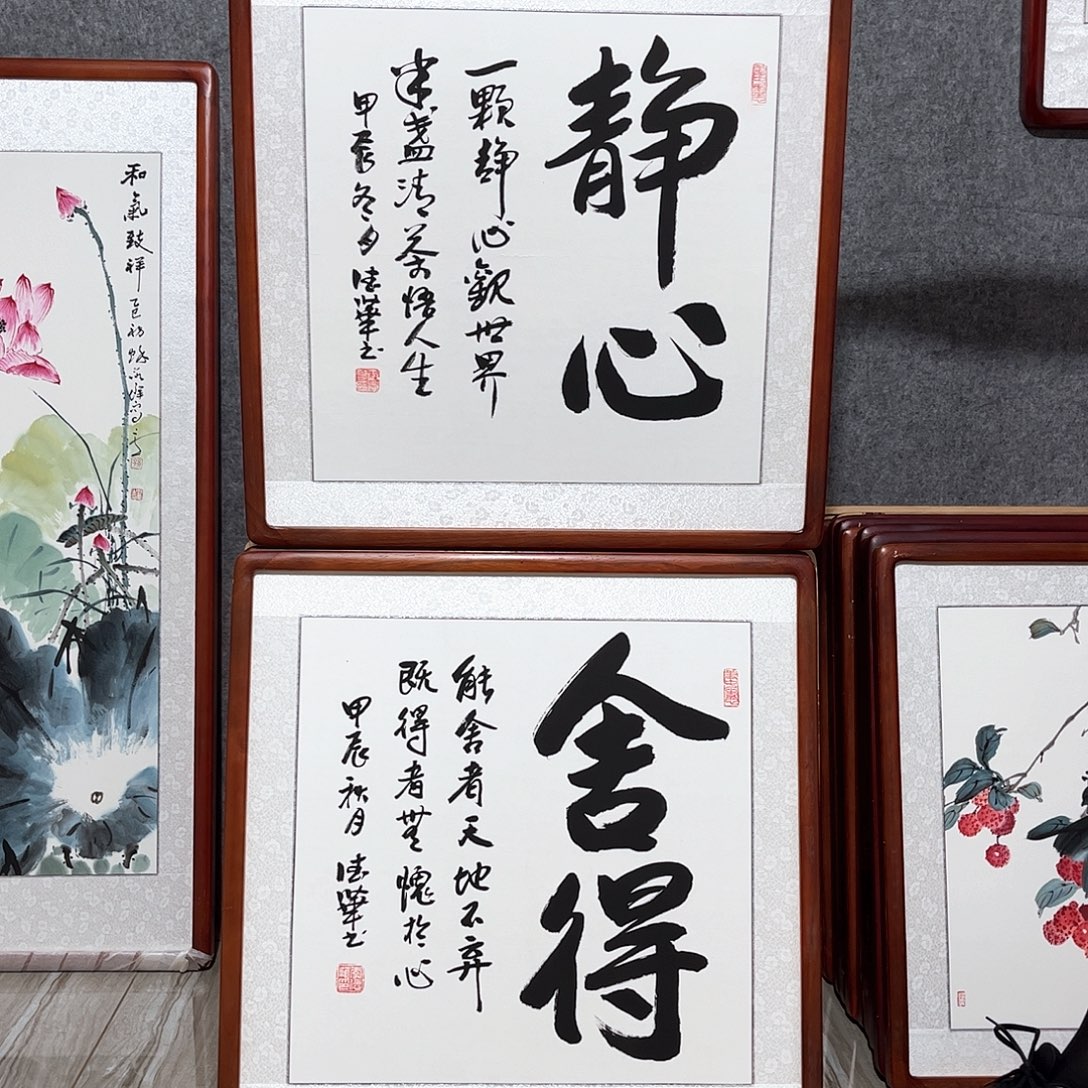 静心
一颗静心观世界
半盏清茶悟人生
甲辰冬月
舍得
能舍者天地不弃
既得者無愧於心
甲辰秋月
和氣致祥